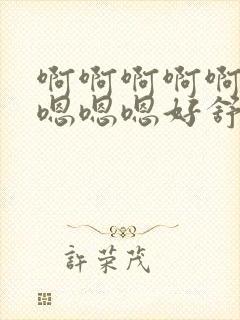 啊啊啊啊啊
嗯嗯嗯好舒
許荣茂